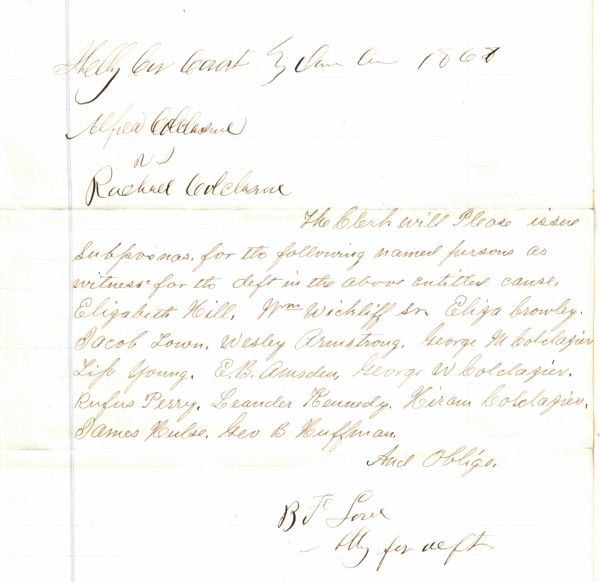 Shelby Cir Court } Jan Term 1868
Alfred Colclasure
vs
Rachael Colclasure
The Clerk will Please issue
Subpoinas, for the following named persons as
witness for the deft in the above entitled cause.
Elizabeth Hill, Wm Wickliff sr Eliza Crowley.
Jacob Lown, Wesley Armstrong, George M Colclazier
Young, E. B. Amsden, George W Colclazier,
Rufus Perry, Leander Kennedy, Hiram Colclazier,
James Hulse, Geo B Huffman,
And Oblige,
B F Love
Atty for deft